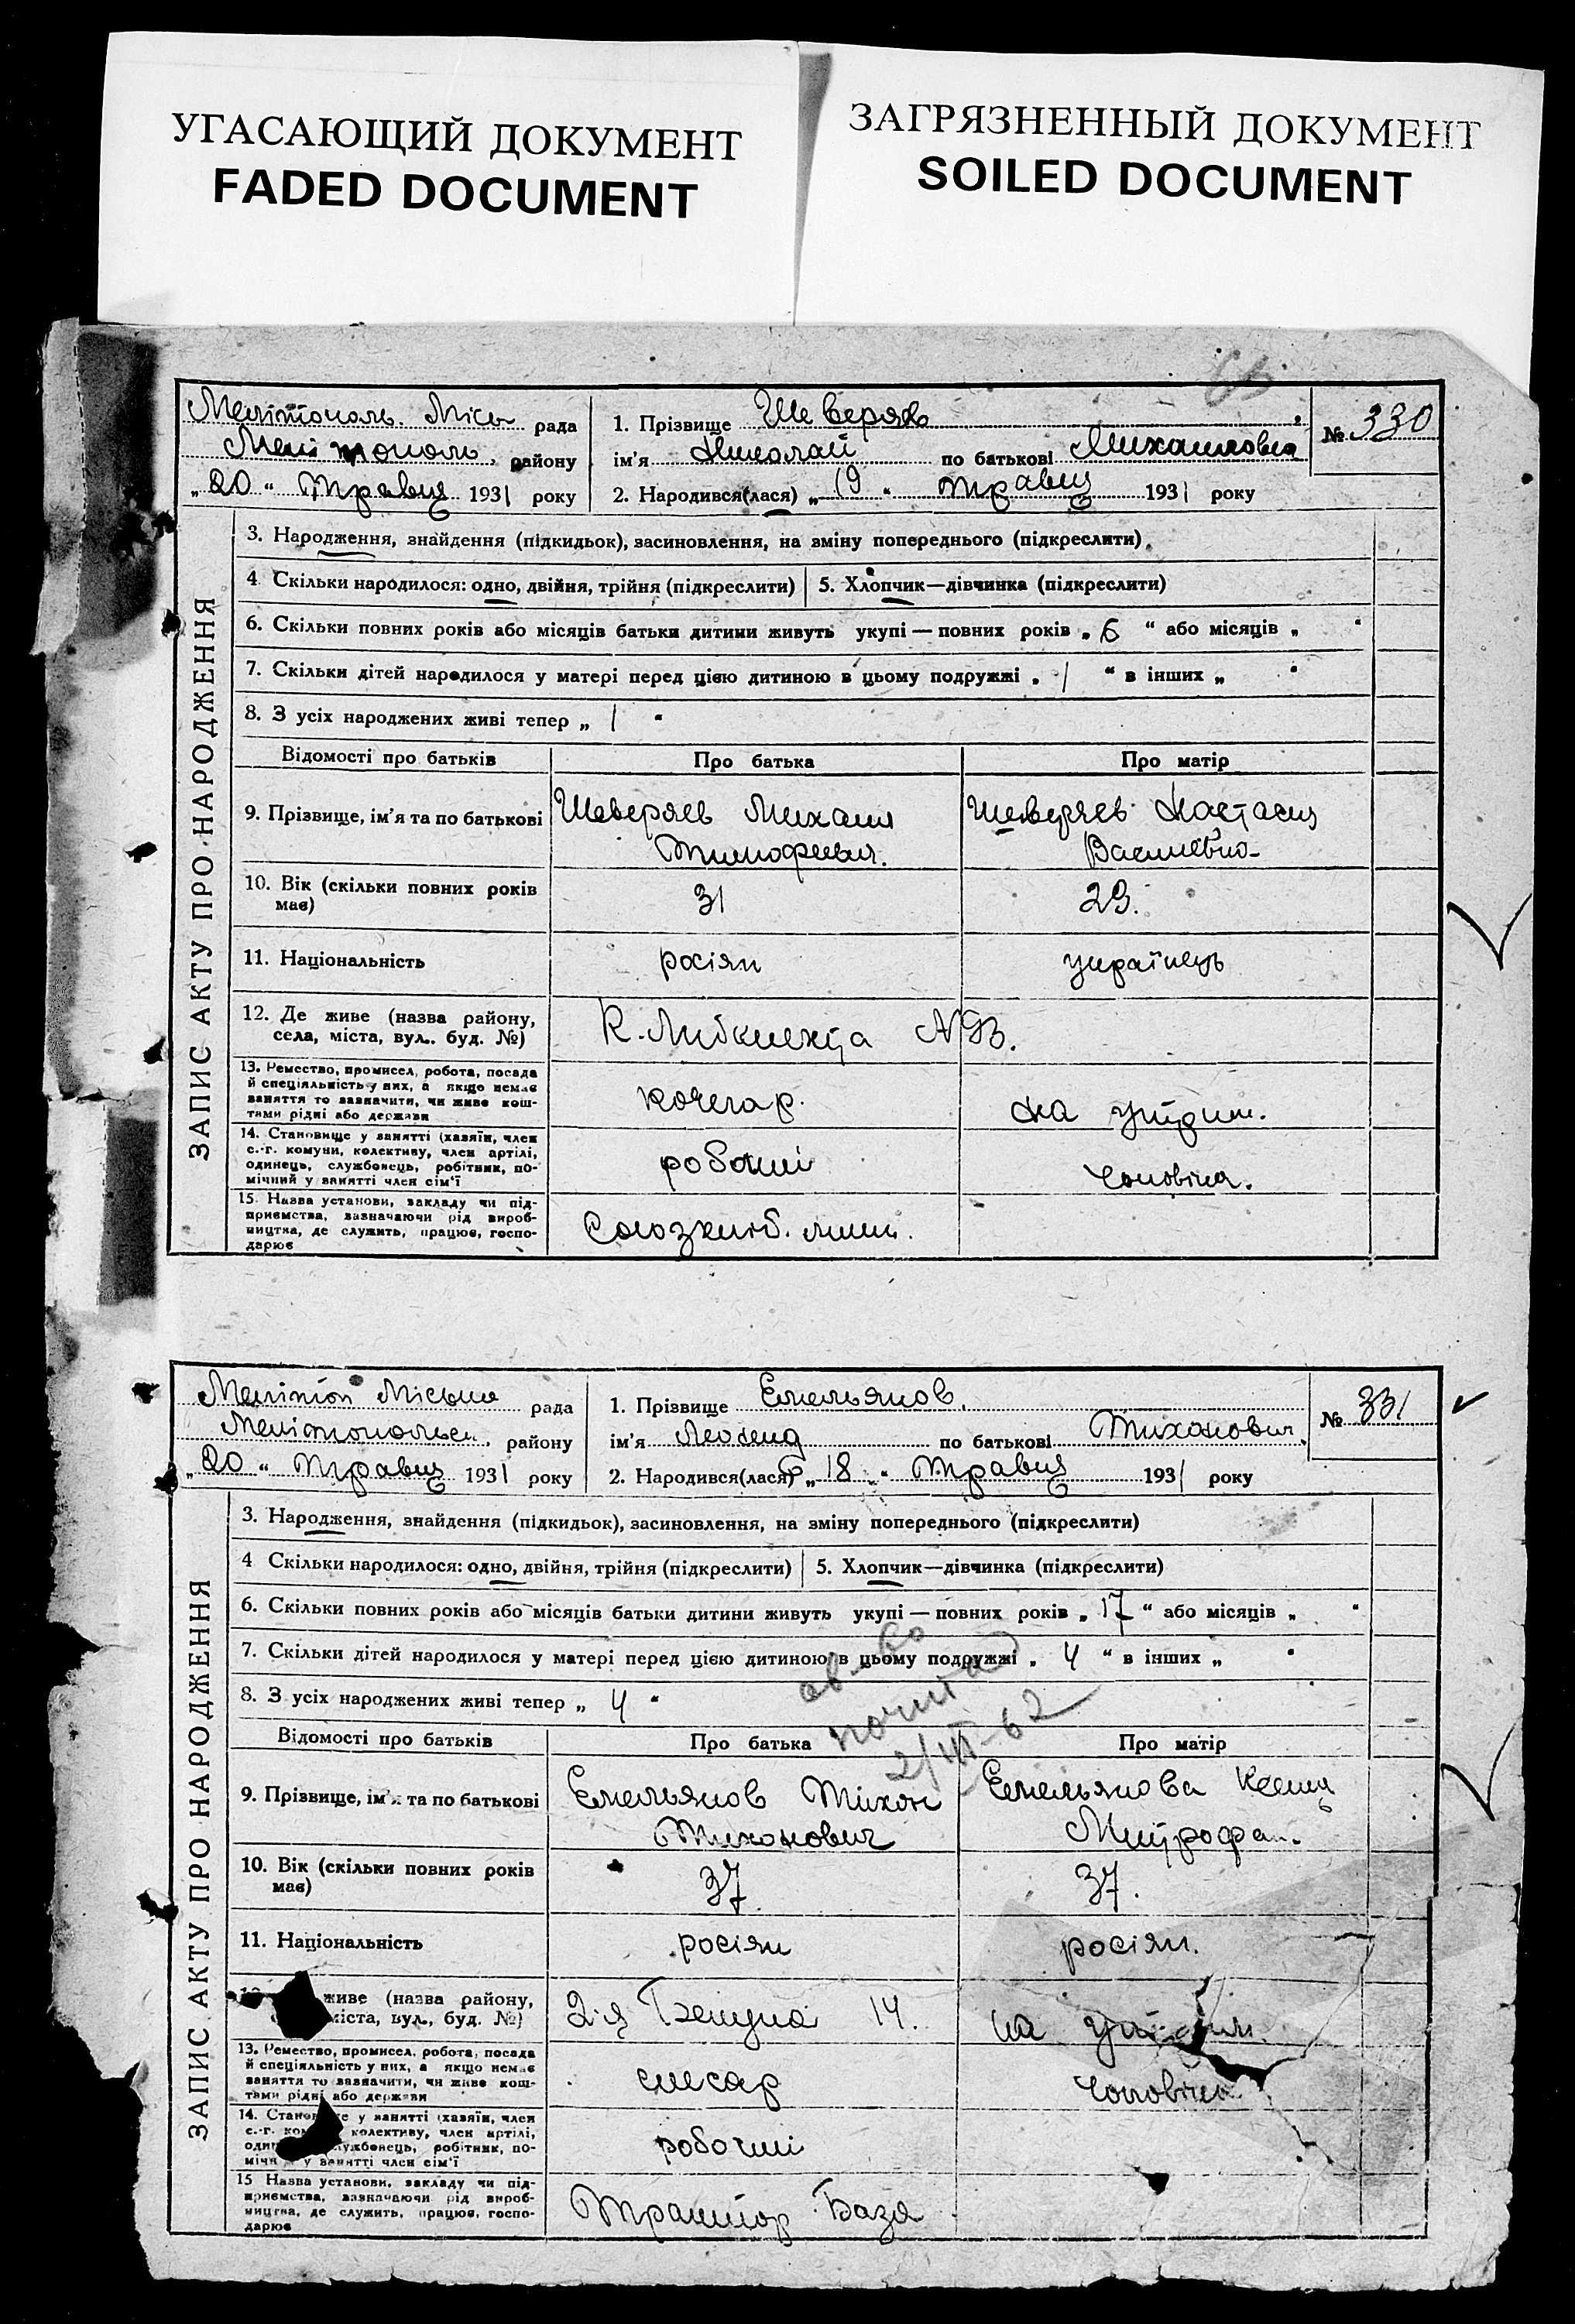 УГАСАЮЩИЙ ДОКУМЕНТ
FADED DOCUMENT
ЗАГРЯЗНЕННЫЙ ДОКУМЕНТ
SOILED DOCUMENT
Мелітополь. Місь рада
Мелітополь, району
„20“ Травця 1931 року
1. Прізвище Шеверяєв
ім'я Николай по батькові Михайловна
2. Народився(лася) „19“ Травця 1931 року
№ 330
ЗАПИС АКТУ ПРО НАРОДЖЕННЯ
3. Народження, знайдення (підкидьок), засиновлення, на зміну попереднього (підкреслити).
4 Скільки народилося: одно, двійня, трійня (підкреслити) 5. Хлопчик—дівчинка (підкреслити)
6. Скільки повних років або місяців батьки дитини живуть укупі — повних років „6“ або місяців „ “
7. Скільки дітей народилося у матері перед цією дитиною в цьому подружжі „1“ в інших „ “
8. З усіх народжених живі тепер „1“
Відомості про батьків Про батька Про матір
9. Прізвище, ім'я та по батькові Шеверяев Михаил Тимофеевич. Шеверяев Настасия Василиевна
10. Вік (скільки повних років має) 31 29.
11. Національність росіян українець
12. Де живе (назва району, села, міста, вул.. буд. №) К. Либкнехта №93.
13. Ремество, промисел, робота, посада й спеціяльність у них, а якщо немає заняття то зазначити, чи живе коштами рідні або держави кочегар. на утрим.
14. Становище у занятті (хазяїн, член с.-г. комуни, колективу, член артілі, одинець, службовець, робітник, помічний у занятті член сім'ї робочий Чоловіка.
15. Назва установи, закладу чи підприємства, зазначаючи рід виробництва, де служить, працює, господарює Союзхліб. млин.
Меліпіоп Міська рада
Мелітопольськ, району
„20“ Травця 1931 року
1. Прізвище Емельянов.
ім'я Леонид по батькові Тихонович.
2. Народився(лася) „18“ Травця 1931 року
№ 331
ЗАПИС АКТУ ПРО НАРОДЖЕННЯ
3. Народження, знайдення (підкидьок), засиновлення, на зміну попереднього (підкреслити)
4 Скільки народилося: одно, двійня, трійня (підкреслити) 5. Хлопчик—дівчинка (підкреслити)
6. Скільки повних років або місяців батьки дитини живуть укупі — повних років „17“ або місяців „ “
7. Скільки дітей народилося у матері перед цією дитиною в цьому подружжі „4“ в інших „ “
8. З усіх народжених живі тепер „4“
св-во
почита
2/VII-62
Відомості про батьків Про батька Про матір
9. Прізвище, ім'я та по батькові Емельянов Тихон Тихонович Емельянова Ксения Митрофан.
10. Вік (скільки повних років має) 37 37.
11. Національність росіян росіян.
живе (назва району, міста, вул., буд. №) 2-я Бешуна 14. на утрим.
13. Ремество, промисел, робота, посада й спеціяльність у них, а якщо немає заняття то зазначити, чи живе коштами рідні або держави слесар Чоловіка
14. у занятті (хазяїн, член с.-г. колективу, член артілі, робітник, у занятті член сім'ї робочий
15 Назва установи, закладу чи підприємства, зазначаючи рід виробництва, де служить, працює, господарює Трактор База